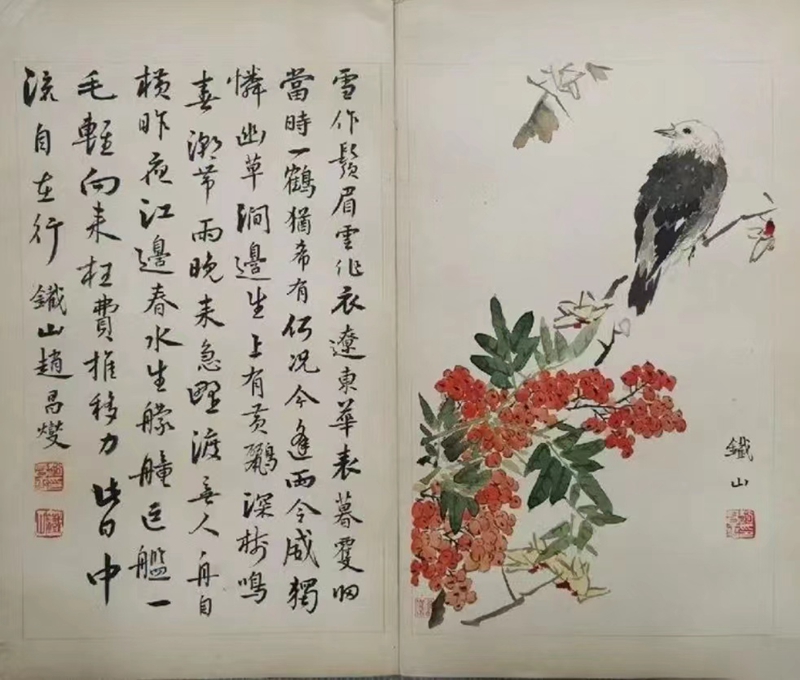 雪作鬚眉雲作衣遼東華表暮雙归
當時一鶴猶希有何况今逢兩令威獨
憐幽草澗邊生上有黃鸝深樹鳴
春潮帶雨晚来急野渡無人舟自
横昨夜江邊春水生艨艟巨艦一
毛輕向来枉費推移力此日中
流自在行 鐵山趙昌燮
鐵山